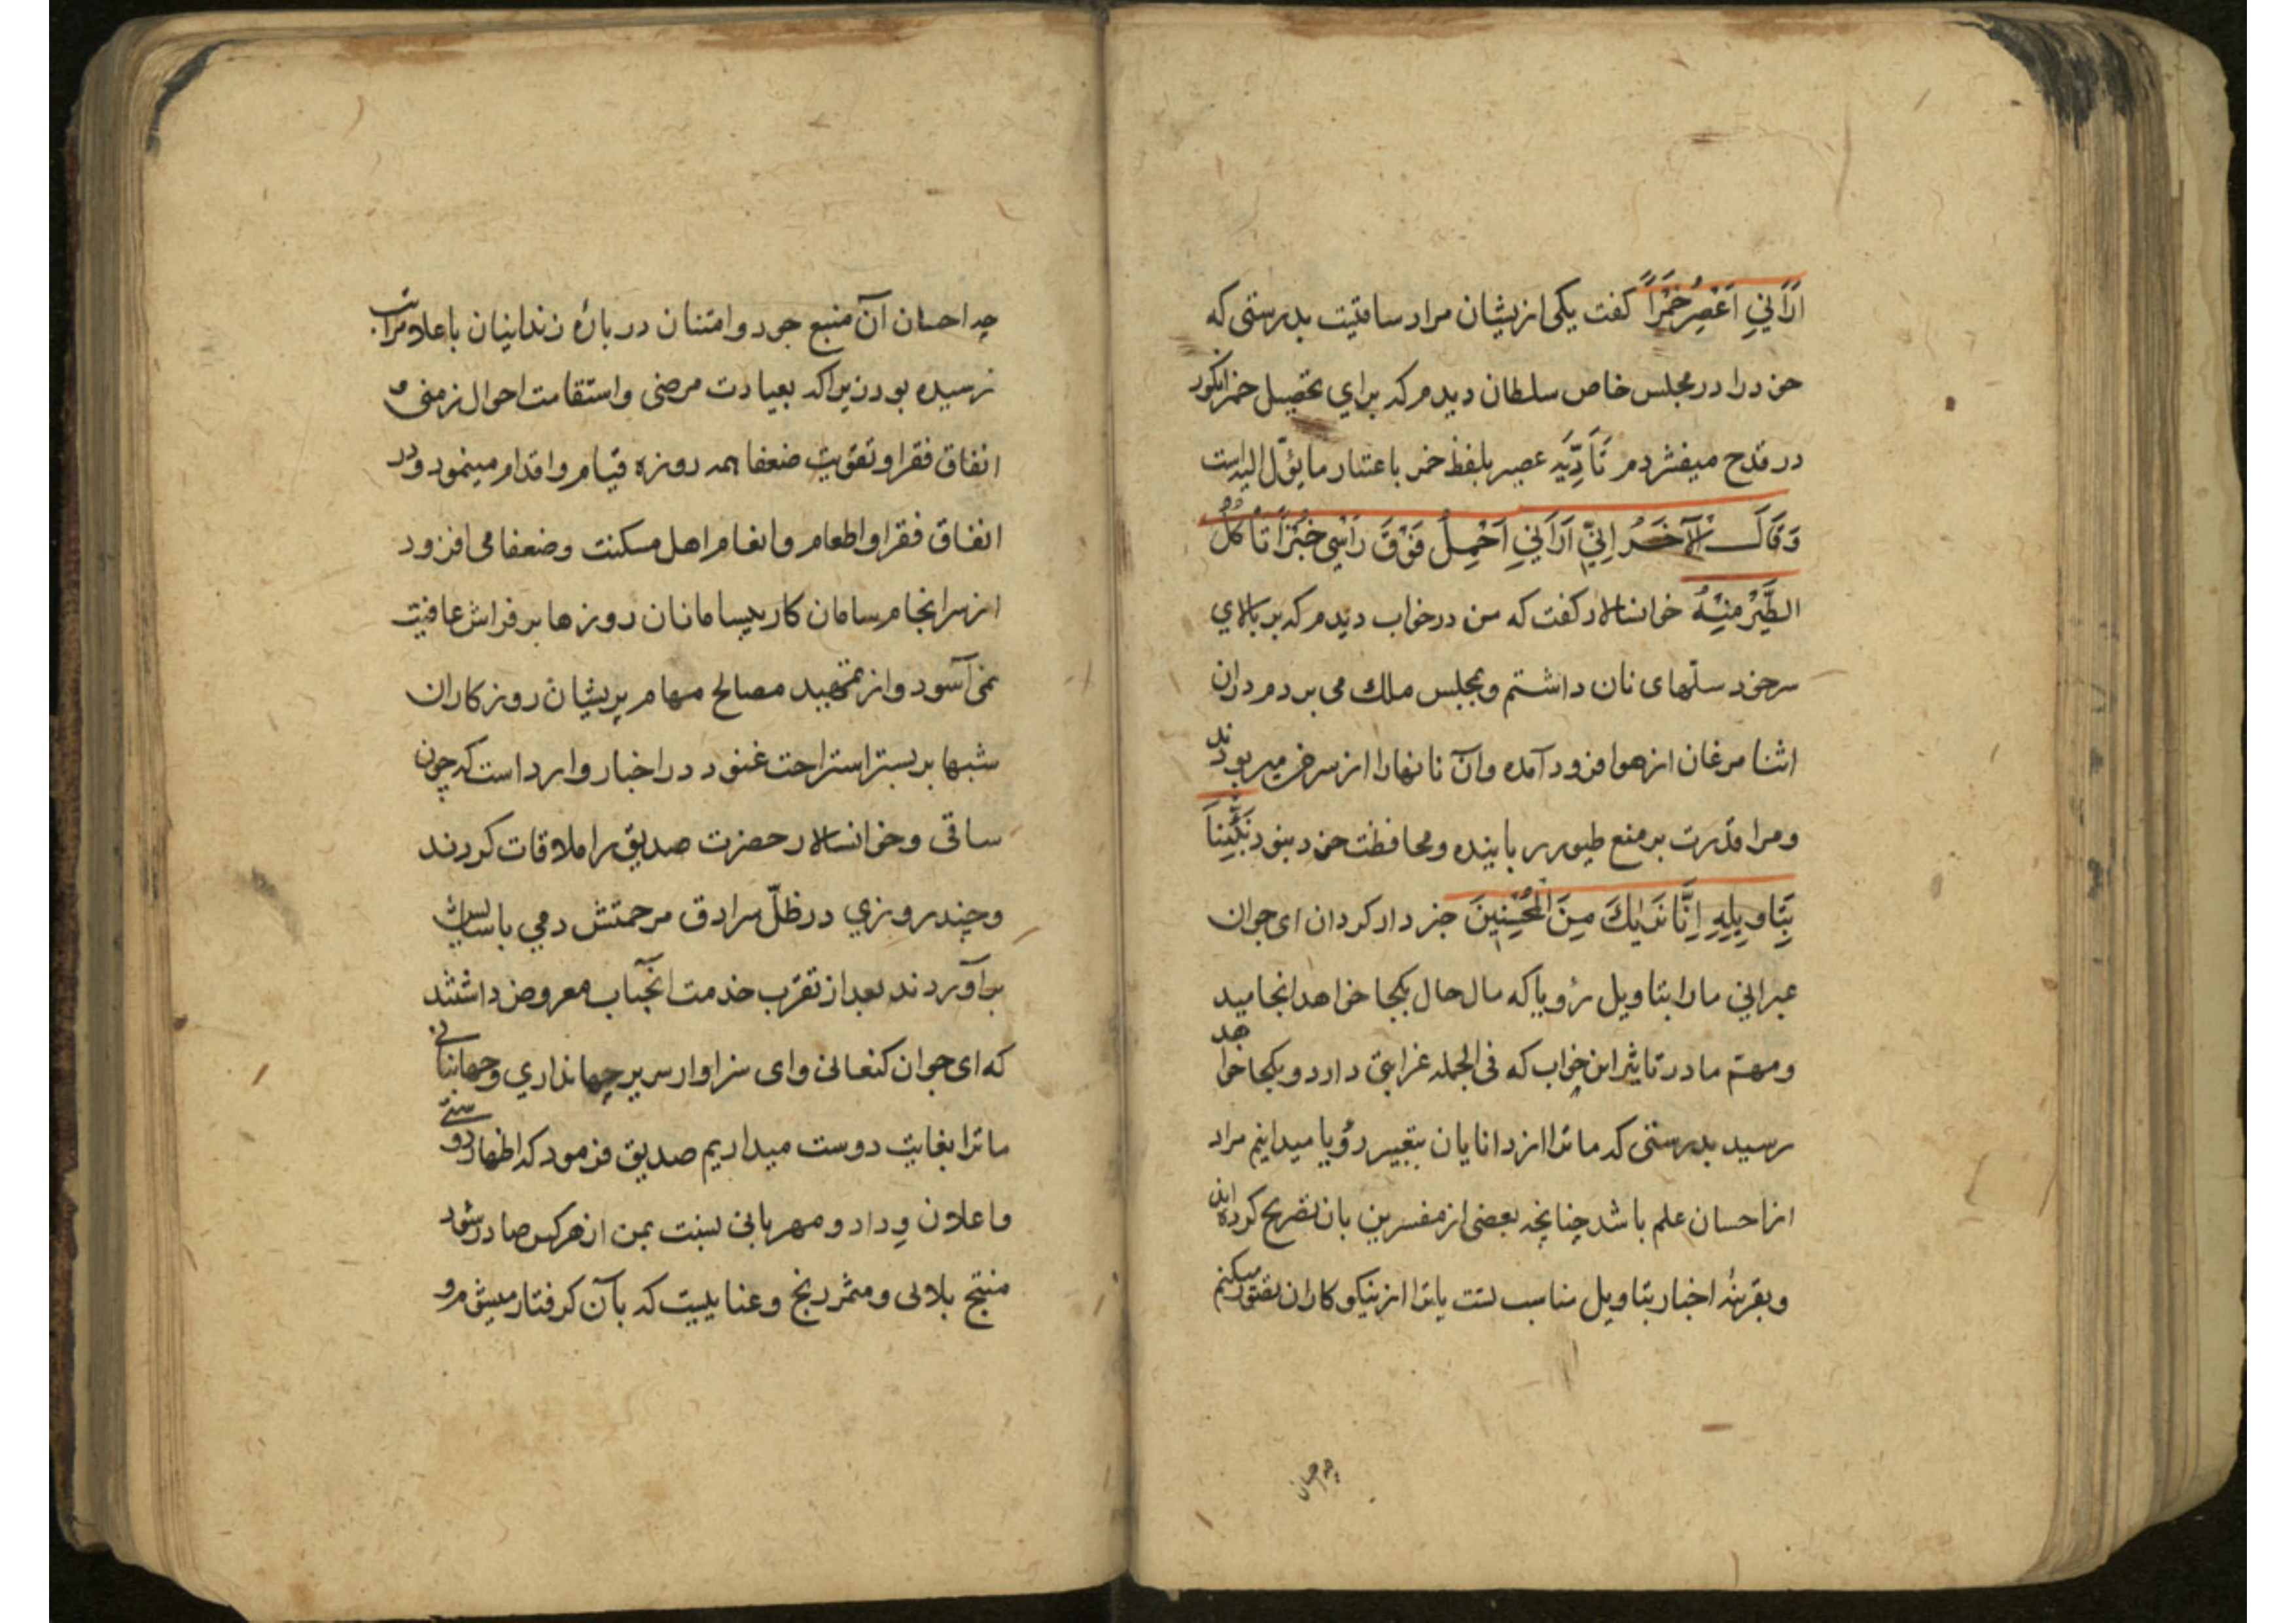 اَرَانِي اَعْصِرُ خَمْرًا گفت یکی ازیشان مراد ساقیست بدرستی که
خود را در مجلس خاص سلطان دیدم که برای تحصیل خمر انگور
در قدح میفشردم تَادِیَه عصیر بلفظ خمر باعتبار ما یؤل الیه است
وَقَالَ الْآخَرُ اِنِّي اَرَانِي اَحْمِلُ فَوْقَ رَاْسِي خُبْزًا تَاْكُلُ
الطَّيْرُ مِنْهُ خوانسالار گفت که من در خواب دیدم که بر بالای
سر خود سلّهای نان داشتم و بمجلس ملک می بردم دران
اثنا مرغان از هوا فرود آمده وآن نانها را از سر من میربودند
ومرا قدرت بر منع طیور رباینده ومحافظت خود نبود نَبِّئْنَا
بِتَاْوِيلِهِ اِنَّا نَرٰيكَ مِنَ الْمُحْسِنِينَ خبردار کردان ای جوان
عبرانی ما را بتاویل رؤیا که مال حال بکجا خواهد انجامید
ومهتم ما در تاثیر این خواب که فی الجمله غرابتی دارد وبکجا خواهد
رسید بدرستی که ما ترا از دانایان بتعبیر رؤیا میدانیم مراد
از احسان علم باشد چنانچه بعضی از مفسرین بان تصریح کرده اند
وبقرینهٔ اخبار بتاویل مناسب تست یا ترا از نیکو کاران تصور میکنیم
چه احسان
چه احسان آن منبع جود وامتنان در بارهٔ زندانیان باعلا مراتب
رسیده بود زیرا که بعیادت مرضی واستقامت احوال زمنی و
انفاق فقرا وتقویت ضعفا همه روزه قیام واقدام مینمود ودر
انفاق فقرا واطعام وانعام اهل مسکنت وضعفا می افزود
از سرانجام سامان کار بیسامانان روزها بر فراش عافیت
نمی آسود واز تمهید مصالح مهام پریشان روزکاران
شبها بر بستر استراحت غنود در اخبار وارد است که چون
ساقی وخوانسالار حضرت صدیق را ملاقات کردند
وچند روزی در ظلّ سرادق مرحمتش دمی باسایش
بر آوردند بعد از تقرّب خدمت آنجناب معروض داشتند
که ای جوان کنعانی وای سزاوار سریر جهانداری وجهانبانی
ما ترا بغایت دوست میداریم صدیق فرمود که اظهار دوستی
واعلان وِداد ومهربانی نسبت بمن از هر کس صادر شود
منتج بلائی ومثمر رنج وعناییست که بآن کرفتار میشوم و